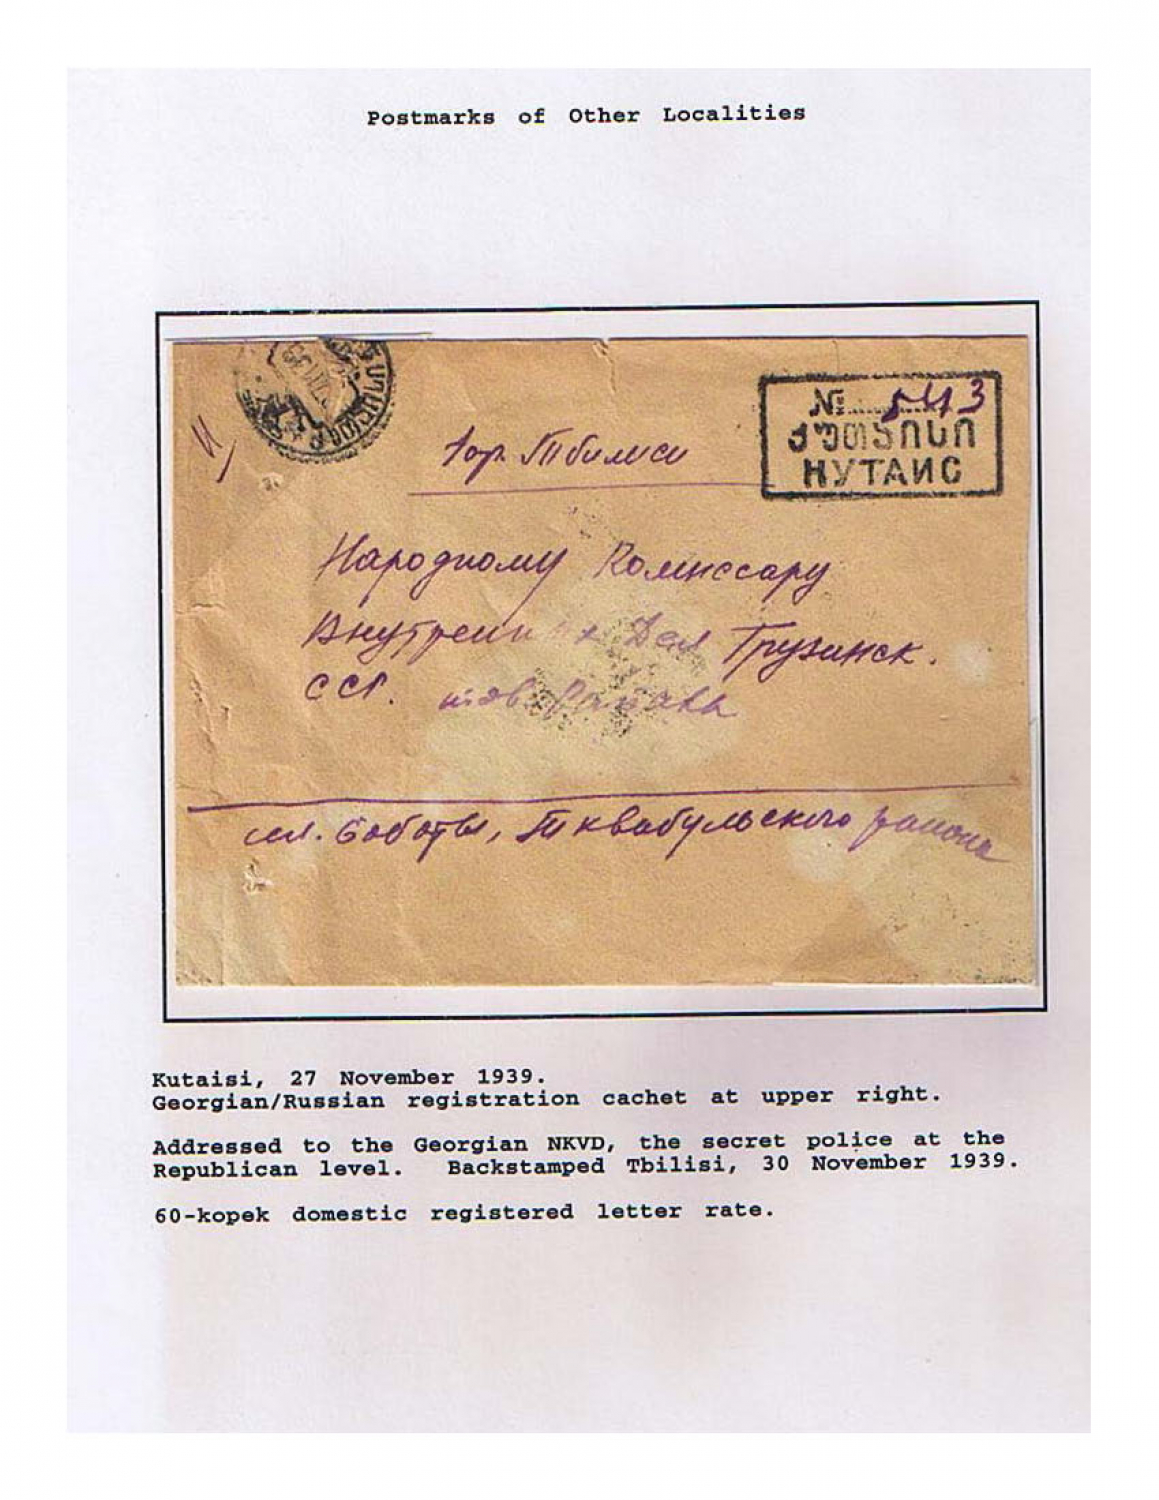 Postmarks of Other Localities
№ 543
ქუთაისი
КУТАИС
гор. Тбилиси
Народному Комиссару
Внутренних Дел Грузинск.
ССР. тов.
сел. Тквабульского района
Kutaisi, 27 November 1939.
Georgian/Russian registration cachet at upper right.
Addressed to the Georgian NKVD, the secret police at the
Republican level. Backstamped Tbilisi, 30 November 1939.
60-kopek domestic registered letter rate.